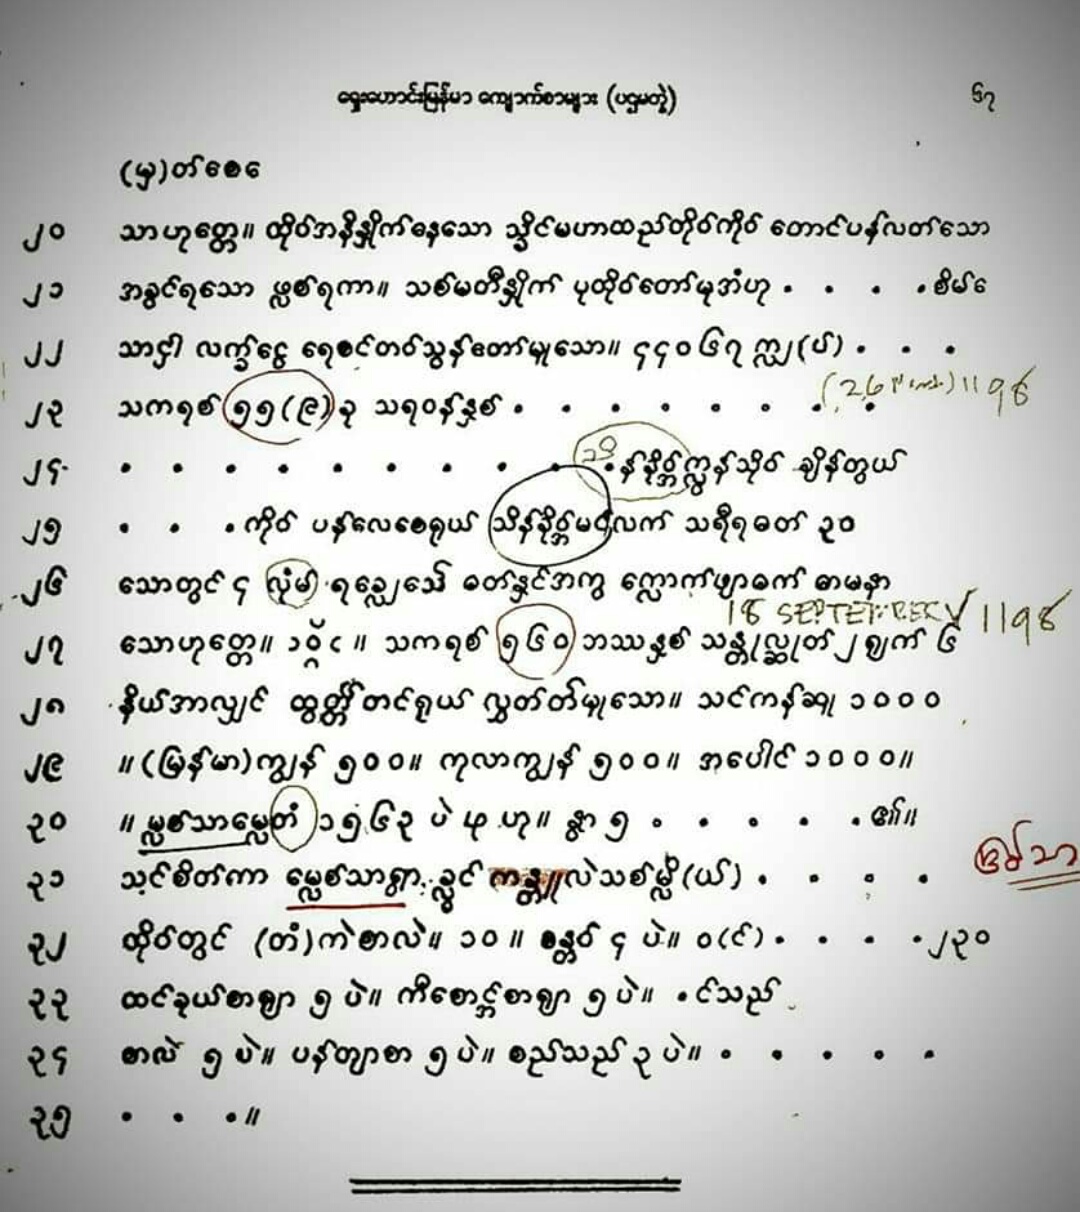 ရှေးဟောင်းမြန်မာ ကျောက်စာများ (ပဌမတွဲ) ၆၇
(မှ)တ်စေ
၂၀ သာဟုတ္တေ။ ထိုဝ်အနိနှိုက် သော သ္ခိင်မဟာထည်တိုဝ်ကိုဝ် တောင်ပန်လတ်သော
၂၁ အခွင်ရသော ဖ္လစ်ရကာ။ သစ်မတီနှိုက် ပုထိုဝ်တော်မူအံဟု . . . . စိမ်
၂၂ သာငှါ လက်ခ ငွေ ရေစင်တဝ်သွန်တော်မူသော။ ၄၄၀၆၇ က္လျ(ပ်) . . .
(26 ) 1198
၂၃ သကရစ် ၅၅(၉) ခု သရဝန်နှစ် . . . . . . . .
၂၄ . . . . . . . . . . န်ခိုဝ် က္လွန်သိုဝ် ချိန်တွယ်
၂၅ . . . ကိုဝ် ပန်လေစေရုယ် လက် သရီရဓတ် ၃၀
၂၆ သောတွင် ၄ လုံမ် ဓတ်နှင်အကွ က္လောက်ဖျာဓက် ဓာမနာ
18 SEPTEMBER 1198
၂၇ သောဟုတ္တေ။ သကရစ် ၅၆၀ ဘဿနှစ် သန္တူလ္ဆုတ် ၂ ရျက် ၆
၂၈ နိယ်အာလျှင် ထွတ်တင်ရုယ် လွှတ်တ်မူသော။ သင်ကန်ဆူ ၁၀၀၀
၂၉ ။ (မြန်မာ)ကျွန် ၅၀၀။ ကုလာကျွန် ၅၀၀။ အပေါင် ၁၀၀၀။
၃၀ ။ မ္လစ်သာမ္လေတံ ၁၅၆၃ ပဲ ဟု။ နွာ ၅ . . . . . ၏။
၃၁ သင်စိတ်ကာ မ္လေစ်သာရွာ ခ္လွင် ကန္တူလဲသစ်မ္လိ(ယ်) . . . .
မြစ်သာ
၃၂ ထိုဝ်တွင် (တံ)ကဲစာလဲ။ ၁၀ ။ စန္တဝ် ၄ ပဲ။ ဝ(င်) . . . . ၂၃၀
၃၃ ထင်ခုယ်စာရျာ ၅ ပဲ။ ကီစောင်စာရျာ ၅ ပဲ။ . င်သည်
၃၄ စာလဲ ၅ ပဲ။ ပန်တျာစာ ၅ ပဲ။ စည်သည် ၃ ပဲ။ . . . . .
၃၅ . . . ။